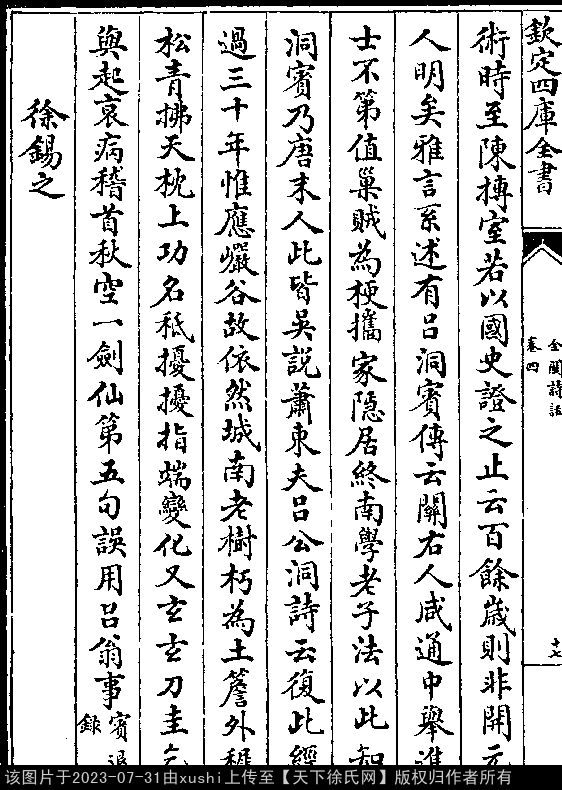 欽定四庫全書
全閩詩話
卷四
十七
術時至陳摶室若以國史證之止云百餘嵗則非開元
人明矣雅言系述有吕洞賔傳云闗右人咸通中舉進
士不第值巢賊為梗攜家隠居終南學老子法以此知
洞賔乃唐末人此皆吳説蕭東夫吕公洞詩云復此經
過三十年惟應巖谷故依然城南老樹朽為土簷外稚
松青拂天枕上功名秪擾擾指端變化又玄玄刀圭乞
與起衰病稽首秋空一劍仙第五句誤用吕翁事
賔退
録
徐錫之
该图片于2023-07-31由xushi上传至【天下徐氏网】版权归作者所有